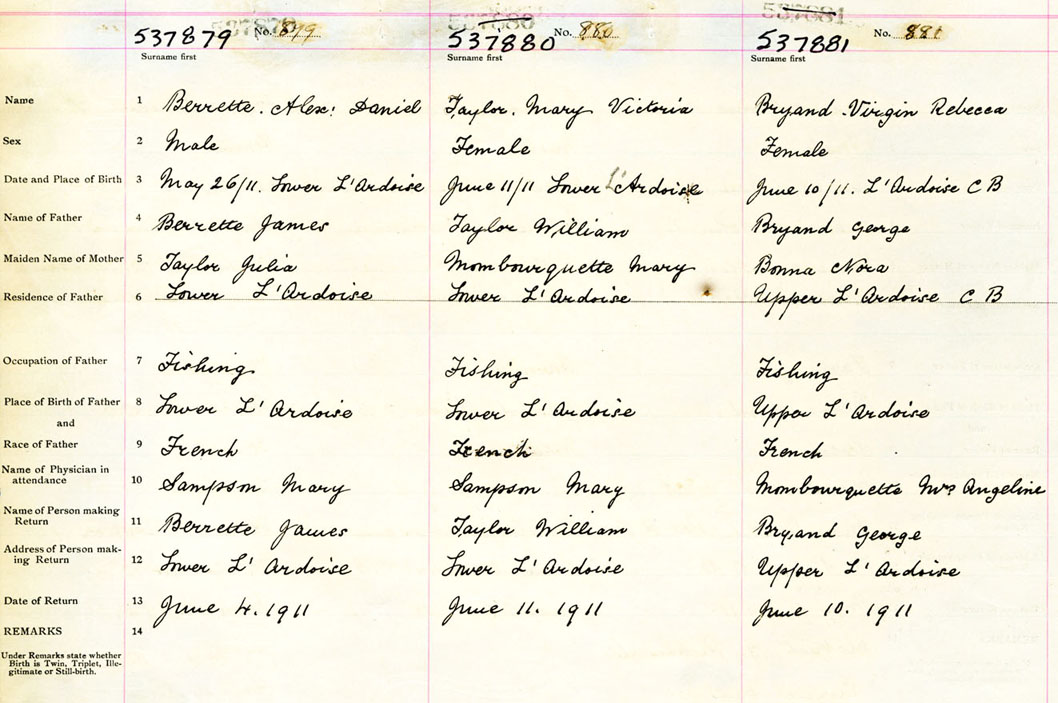 537879 537880 537881
537879 No. 879 537880 No. 880 537881 No. 881
Surname first Surname first Surname first
Name 1 Berrette. Alex: Daniel Taylor. Mary Victoria Bryand. Virgin Rebecca
Sex 2 Male Female Female
Date and Place of Birth 3 May 26/11. Lower L'Ardoise June 11/11 Lower L'Ardoise June 10/11. L'Ardoise C B
Name of Father 4 Berrette James Taylor William Bryand George
Maiden Name of Mother 5 Taylor Julia Mombourquette Mary Bonna Nora
Residence of Father 6 Lower L'Ardoise Lower L'Ardoise Upper L'Ardoise C B
Occupation of Father 7 Fishing Fishing Fishing
Place of Birth of Father 8 Lower L'Ardoise Lower L'Ardoise Upper L'Ardoise
and
Race of Father 9 French French French
Name of Physician in
attendance 10 Sampson Mary Sampson Mary Mombourquette Mrs Angeline
Name of Person making
Return 11 Berrette James Taylor William Bryand George
Address of Person mak-
ing Return 12 Lower L'Ardoise Lower L'Ardoise Upper L'Ardoise
Date of Return 13 June 4. 1911 June 11. 1911 June 10. 1911
REMARKS 14
Under Remarks state whether
Birth is Twin, Triplet, Ille-
gitimate or Still-birth.